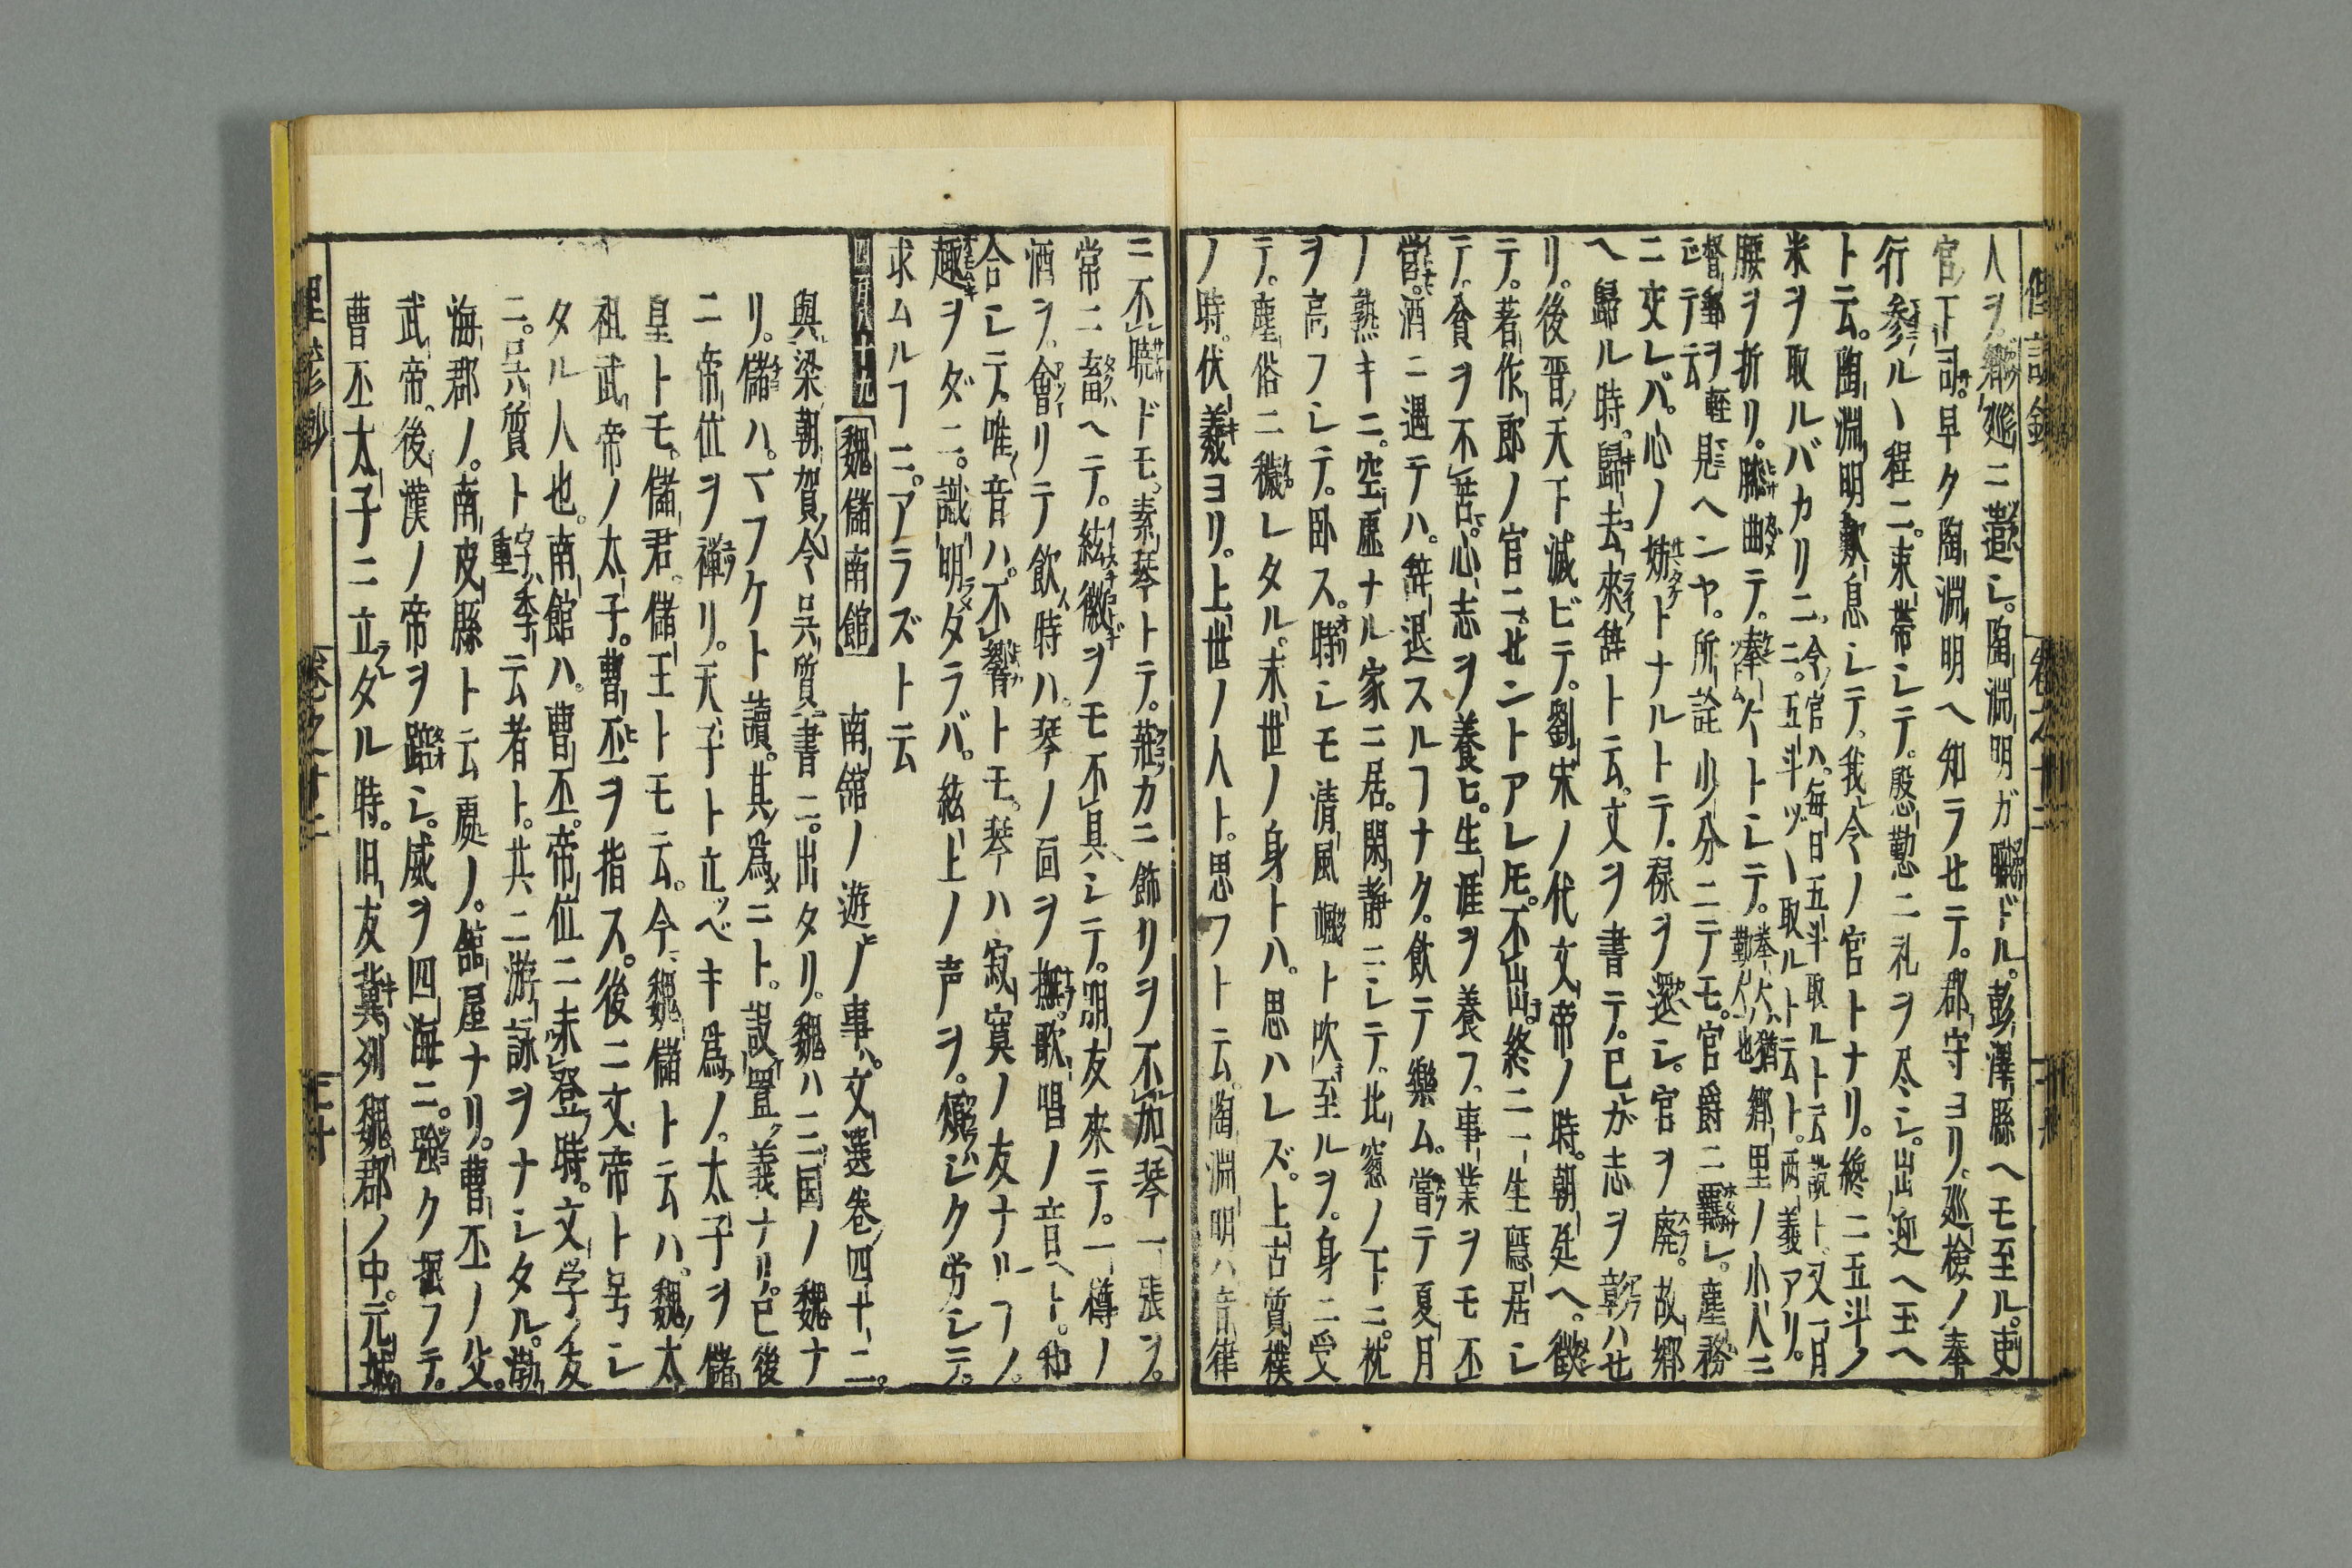 人ヲ。郷廷ニ遣シ。陶淵明ガ隣ドル。彭澤縣ヘモ至ル。吏
官下司。早ク陶淵明ヘ知ラセテ。郡守ヨリ。巡檢ノ奉
行參ル程ニ。束帶シテ。慇懃ニ礼ヲ尽シ。出迎ヘ玉ヘ
ト云。陶淵明歎息シテ。我今ノ官トナリ。纔ニ五斗ノ
米ヲ取ルバカリニ。令官ハ。毎日五斗取ルト云説ト。又一月ニ。五斗ヅヽ取ルト云ト。両義アリ。
腰ヲ折リ。膝曲テ。拳々トシテ。拳々ハ猶勤々也郷里ノ小人ニ
督郵ヲ軽ヘンヤ。所詮少分ニテモ。官爵ニ羈レ。塵務
ニ交レバ。心ノ妨トナルトテ。禄ヲ還シ。官ヲ廃。故郷
ヘ歸ル時。歸去來辞ト云。文ヲ書テ。已ガ志ヲ彰ハセ
リ。後晋ノ天下滅ビテ。劉宋ノ代文帝ノ時。朝廷ヘ。徴
テ。著作郎ノ官ニ。セントアレ𪜈。不出。終ニ一生隱居シ
テ。貧ヲ不苦。心志ヲ養ヒ。生涯ヲ養フ。事業ヲモ不
營。酒ニ遇テハ。辞退スルヿナク。飲テ樂ム。嘗テ夏月
ノ熱キニ。空虚ナル家ニ居。閑静ニシテ。北窓ノ下ニ。枕
ヲ高フシテ。卧ス。時シモ清風颯ト吹至ルヲ。身ニ受
テ。塵俗ニ穢レタル。末世ノ身トハ。思ハレズ。上古質樸
ノ時。伏羲ヨリ。上世ノ人ト。思フト云。陶淵明ハ音律
ニ不曉ドモ。素琴トテ。莊カニ飾リヲ不加琴一張ヲ。
常ニ畜ヘテ。絃徽ヲモ不具シテ。朋友來テ。一樽ノ
酒ヲ。會リテ飲時ハ。琴ノ面ヲ撫。歌唱ノ音ヘト。和
合シテ。唯音ハ。不響トモ。琴ハ寂寞ノ友ナルヿノ。
趣ヲダニ。識明タラバ。絃上ノ声ヲ。煩シク労シテ。
求ムルヿニ。アラズト云
四百八十九 魏儲南館 南舘ノ遊ノ事。文選卷四十二。
與梁朝賀令呉質書ニ。出タリ。魏ハ三国ノ魏ナ
リ。儲ハ。マフケト讀。其爲ニト。設置義ナリ。已後
ニ帝位ヲ禅リ。天子ト立ベキ爲ノ。太子ヲ儲
皇トモ。儲君。儲王トモ云。今魏儲ト云ハ。魏ノ太
祖武帝ノ太子。曹丕ヲ指ス。後ニ文帝ト号シ
タル人也。南館ハ。曹丕。帝位ニ未登時。文学ノ友
ニ。呉質ト字ハ季重云者ト。共ニ游詠ヲナシタル。渤
海郡ノ。南皮縣ト云處ノ。舘屋ナリ。曹丕ノ父。
武帝。後漢ノ帝ヲ蹈シ。威ヲ四海ニ。強ク振フテ。
曹丕太子ニ立タル時。旧友冀列魏郡ノ中。元城
卷之十二